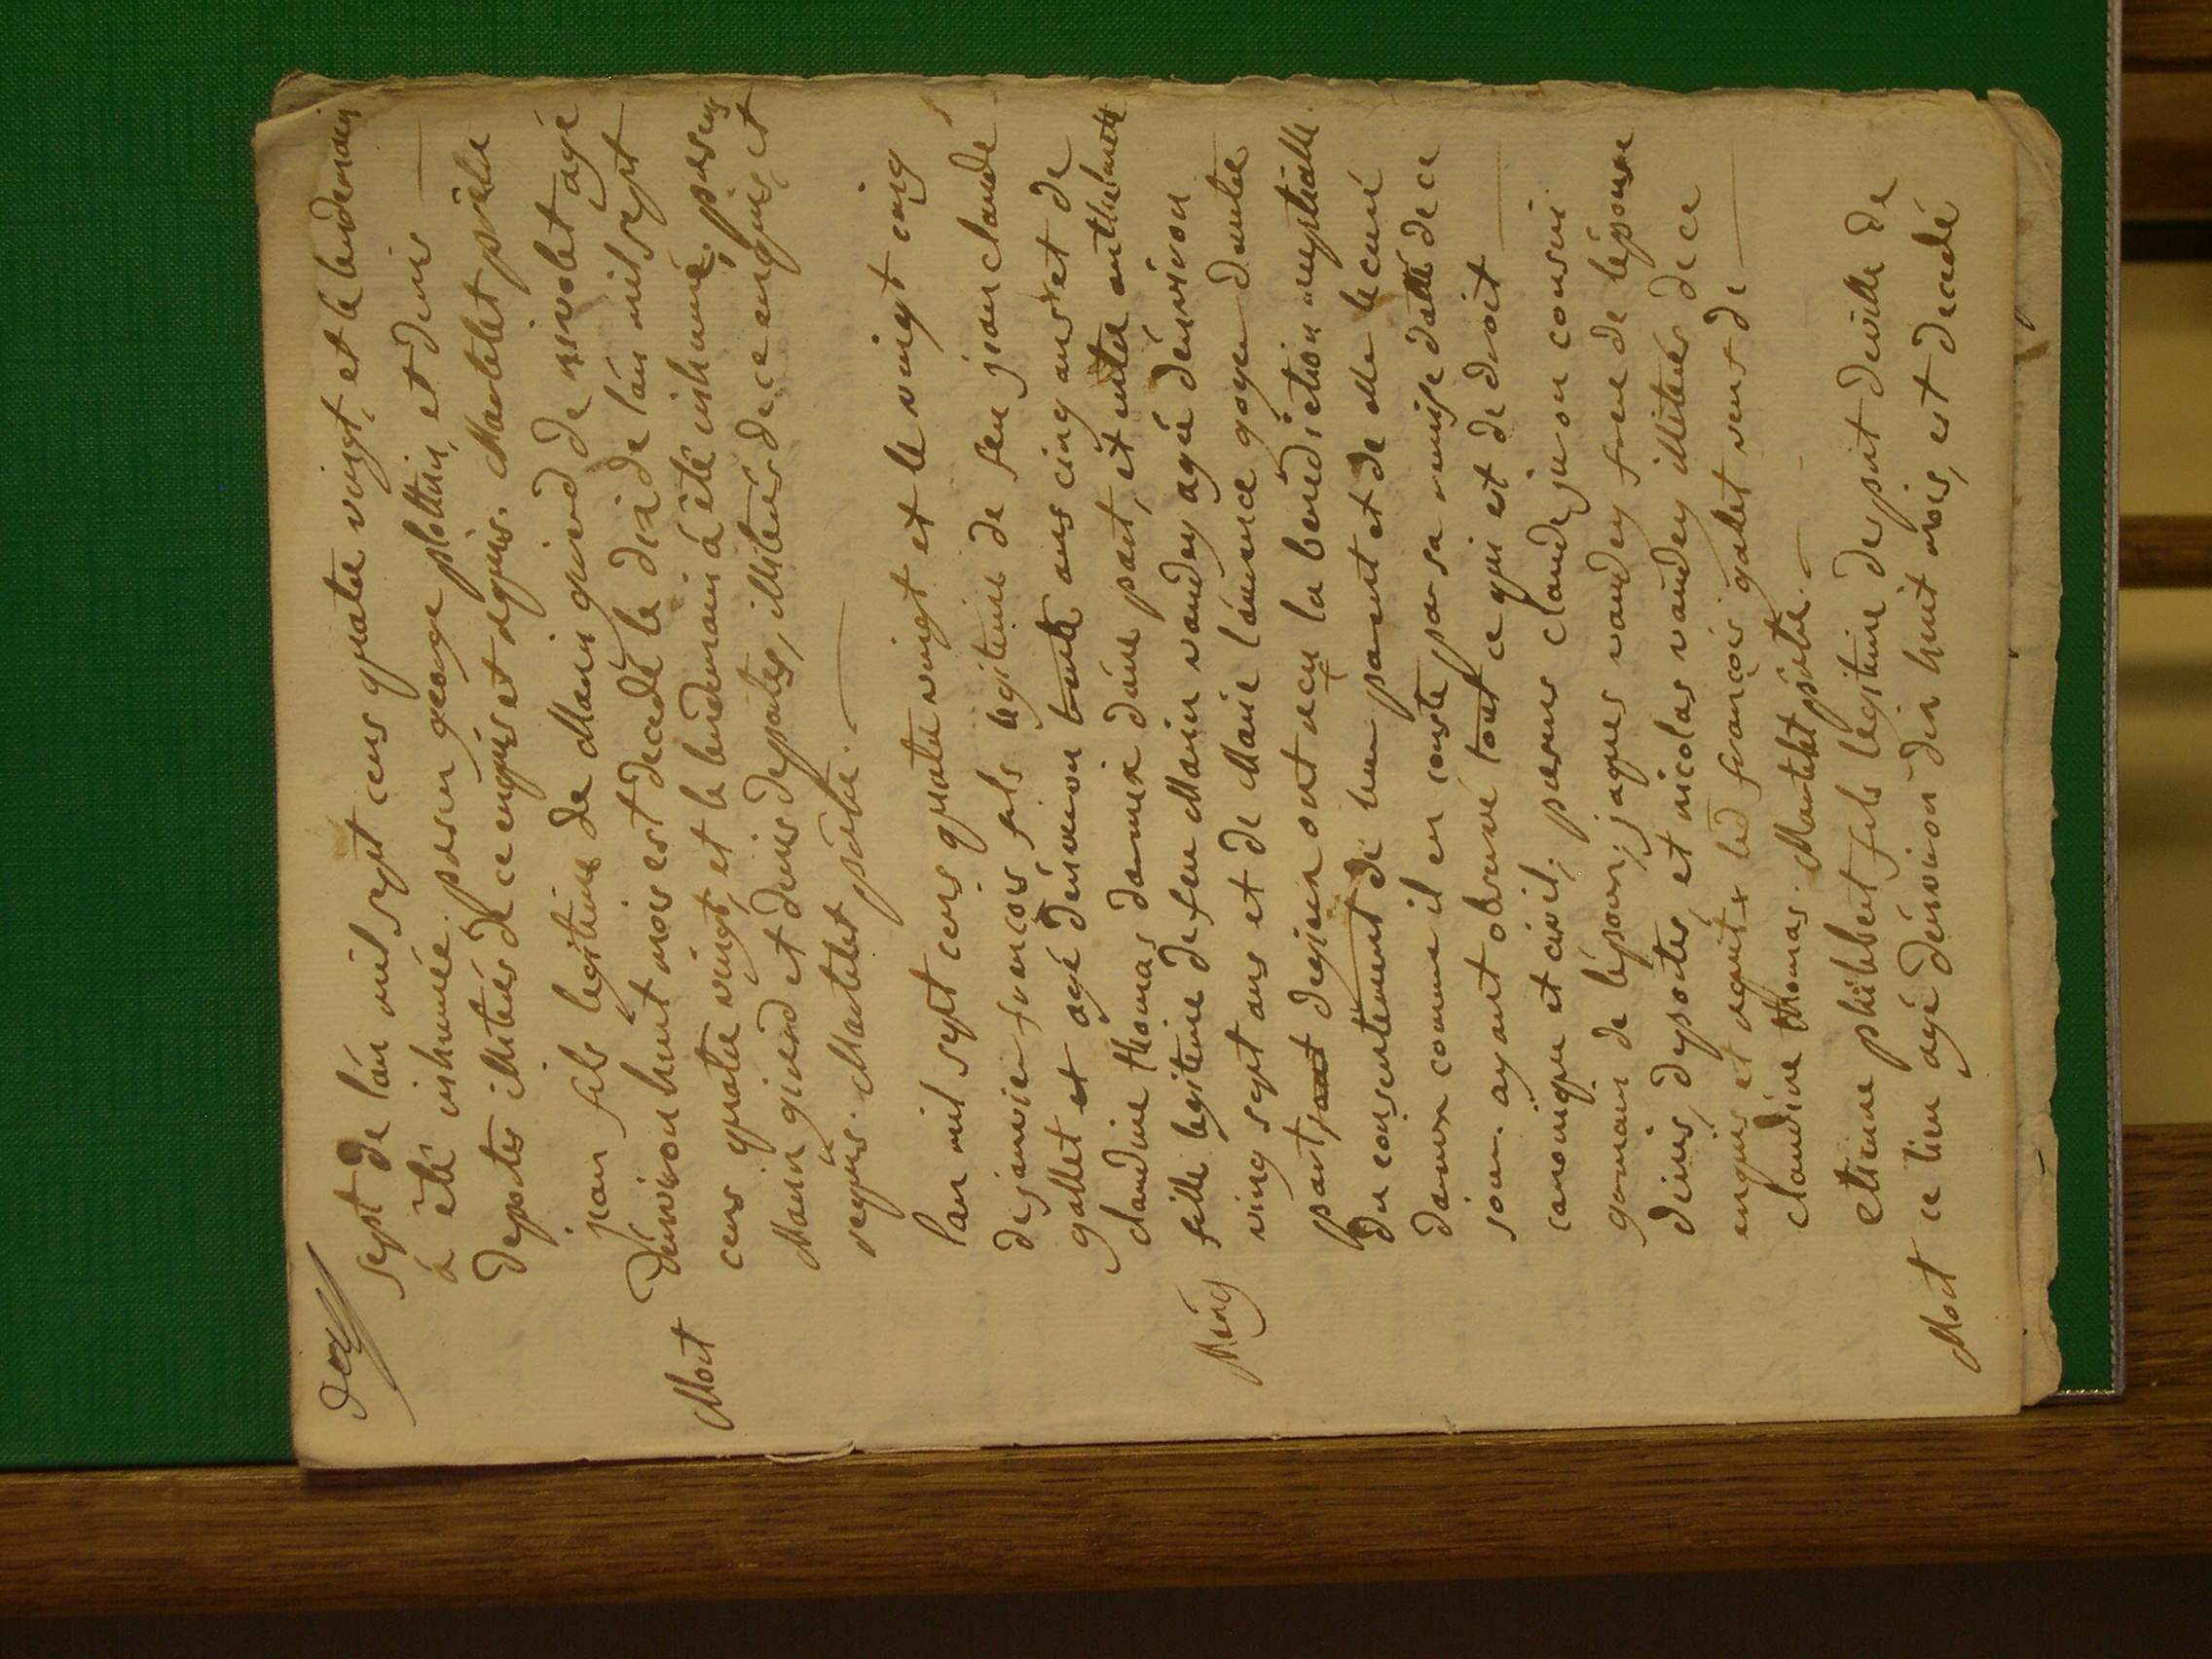 sept de lán mil sept cens quatre vingt, et le lendemain
á êté inhumée. presen george plottin, et denis
deportes illiterés de ce enquis et requis. Martelet prêtre
jean fils legitime de Marin guierd de nivolet agé
Mort dénviron huit mois est decedé le dix de lán mil sept
cens quatre vingt, et le lendemain á êté inhumé, presens
Marin guierd et denis deportes, illiterés de ce enquis, et
requis. Martelet prêtre.
lan mil sept cens quatre vingt et le vingt cinq
de janvier francois fils legitime de feu jean claude
gallet et agé dénviron trente ans cinq ans et de
claudine thomas daumix dúne part, et
fille legitime de feu Marin vandey agée dénviron
ving sept ans et de Marie laúrence goyen dautre
part, ont reçu la benediction nuptialle.
du consentement de leur parent et de Mr le curé
daumx comme il en conste par sa remise datté de ce
jour. ayant observé tout ce qui est de droit
canonique et civil; presens claude jean cousin
germain de lépoux; jaques vandey frere de lépouse
denis, deportes, et nicolas vandey illiterés de ce
enquis et requit led françois gallet veuf de
claudine thomas. Martelet prêtre.
etienne philibert fils legitime de
Mort ce lieu agé dénviron dix huit mois, est decedé